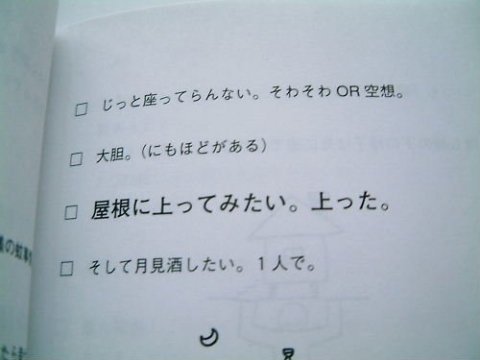 □ じっと座ってらんない。そわそわOR空想。
□ 大胆。（にもほどがある）
□ 屋根に上ってみたい。上った。
□ そして月見酒したい。1人で。